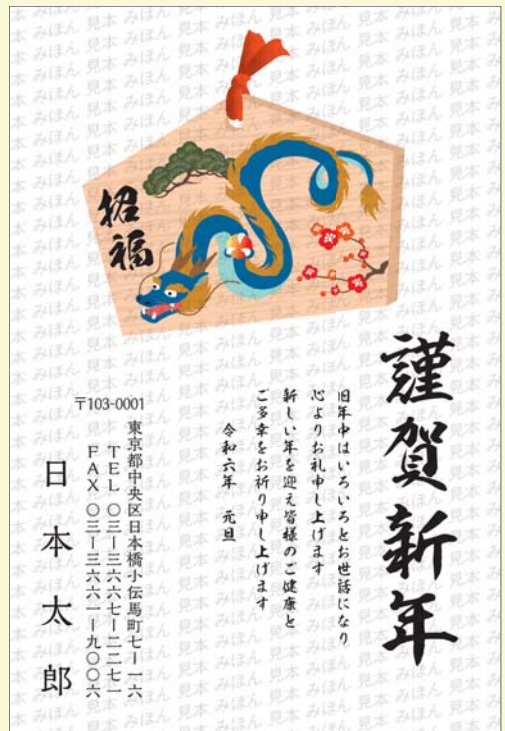 招福
謹賀新年
旧年中はいろいろとお世話になり
心よりお礼申し上げます
新しい年を迎え皆様のご健康と
ご多幸をお祈り申し上げます
令和六年 元旦
〒103-0001
東京都中央区日本橋小伝馬町七ー一六
TEL 〇三ー三六六七ー二二七一
FAX 〇三ー三六六一ー九〇〇六
日本太郎
見本 みほん